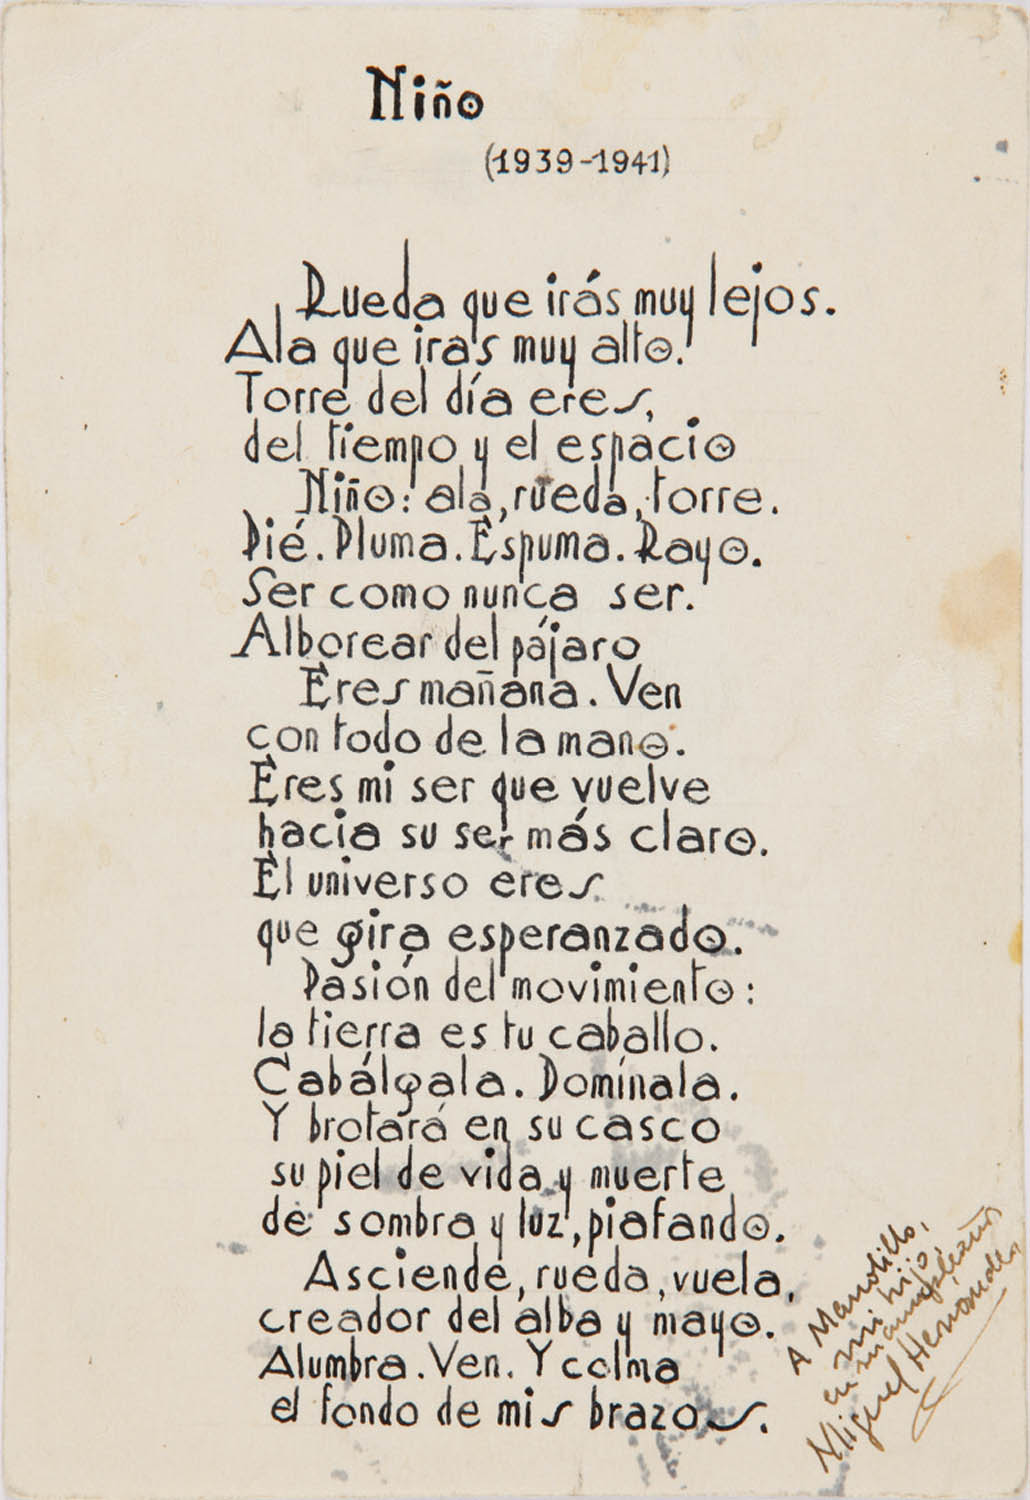 Niño
(1939-1941)
Rueda que irás muy lejos.
Ala que irás muy alto.
Torre del día eres,
del tiempo y el espacio
Niño: ala, rueda, torre.
Pié. Pluma. Espuma. Rayo.
Ser como nunca ser.
Alborear del pájaro
Eres mañana. Ven
con todo de la mano.
Eres mi ser que vuelve
hacia su ser más claro.
El universo eres
que gira esperanzado.
Pasión del movimiento:
la tierra es tu caballo.
Cabálgala. Domínala.
Y brotará en su casco
su piel de vida y muerte
de sombra y luz, piafando.
Asciende, rueda, vuela,
creador del alba y mayo.
Alumbra. Ven. Y colma
el fondo de mis brazos.
A Manolillo,
mi hijo,
en mi cumpleaños
Miguel Hernández